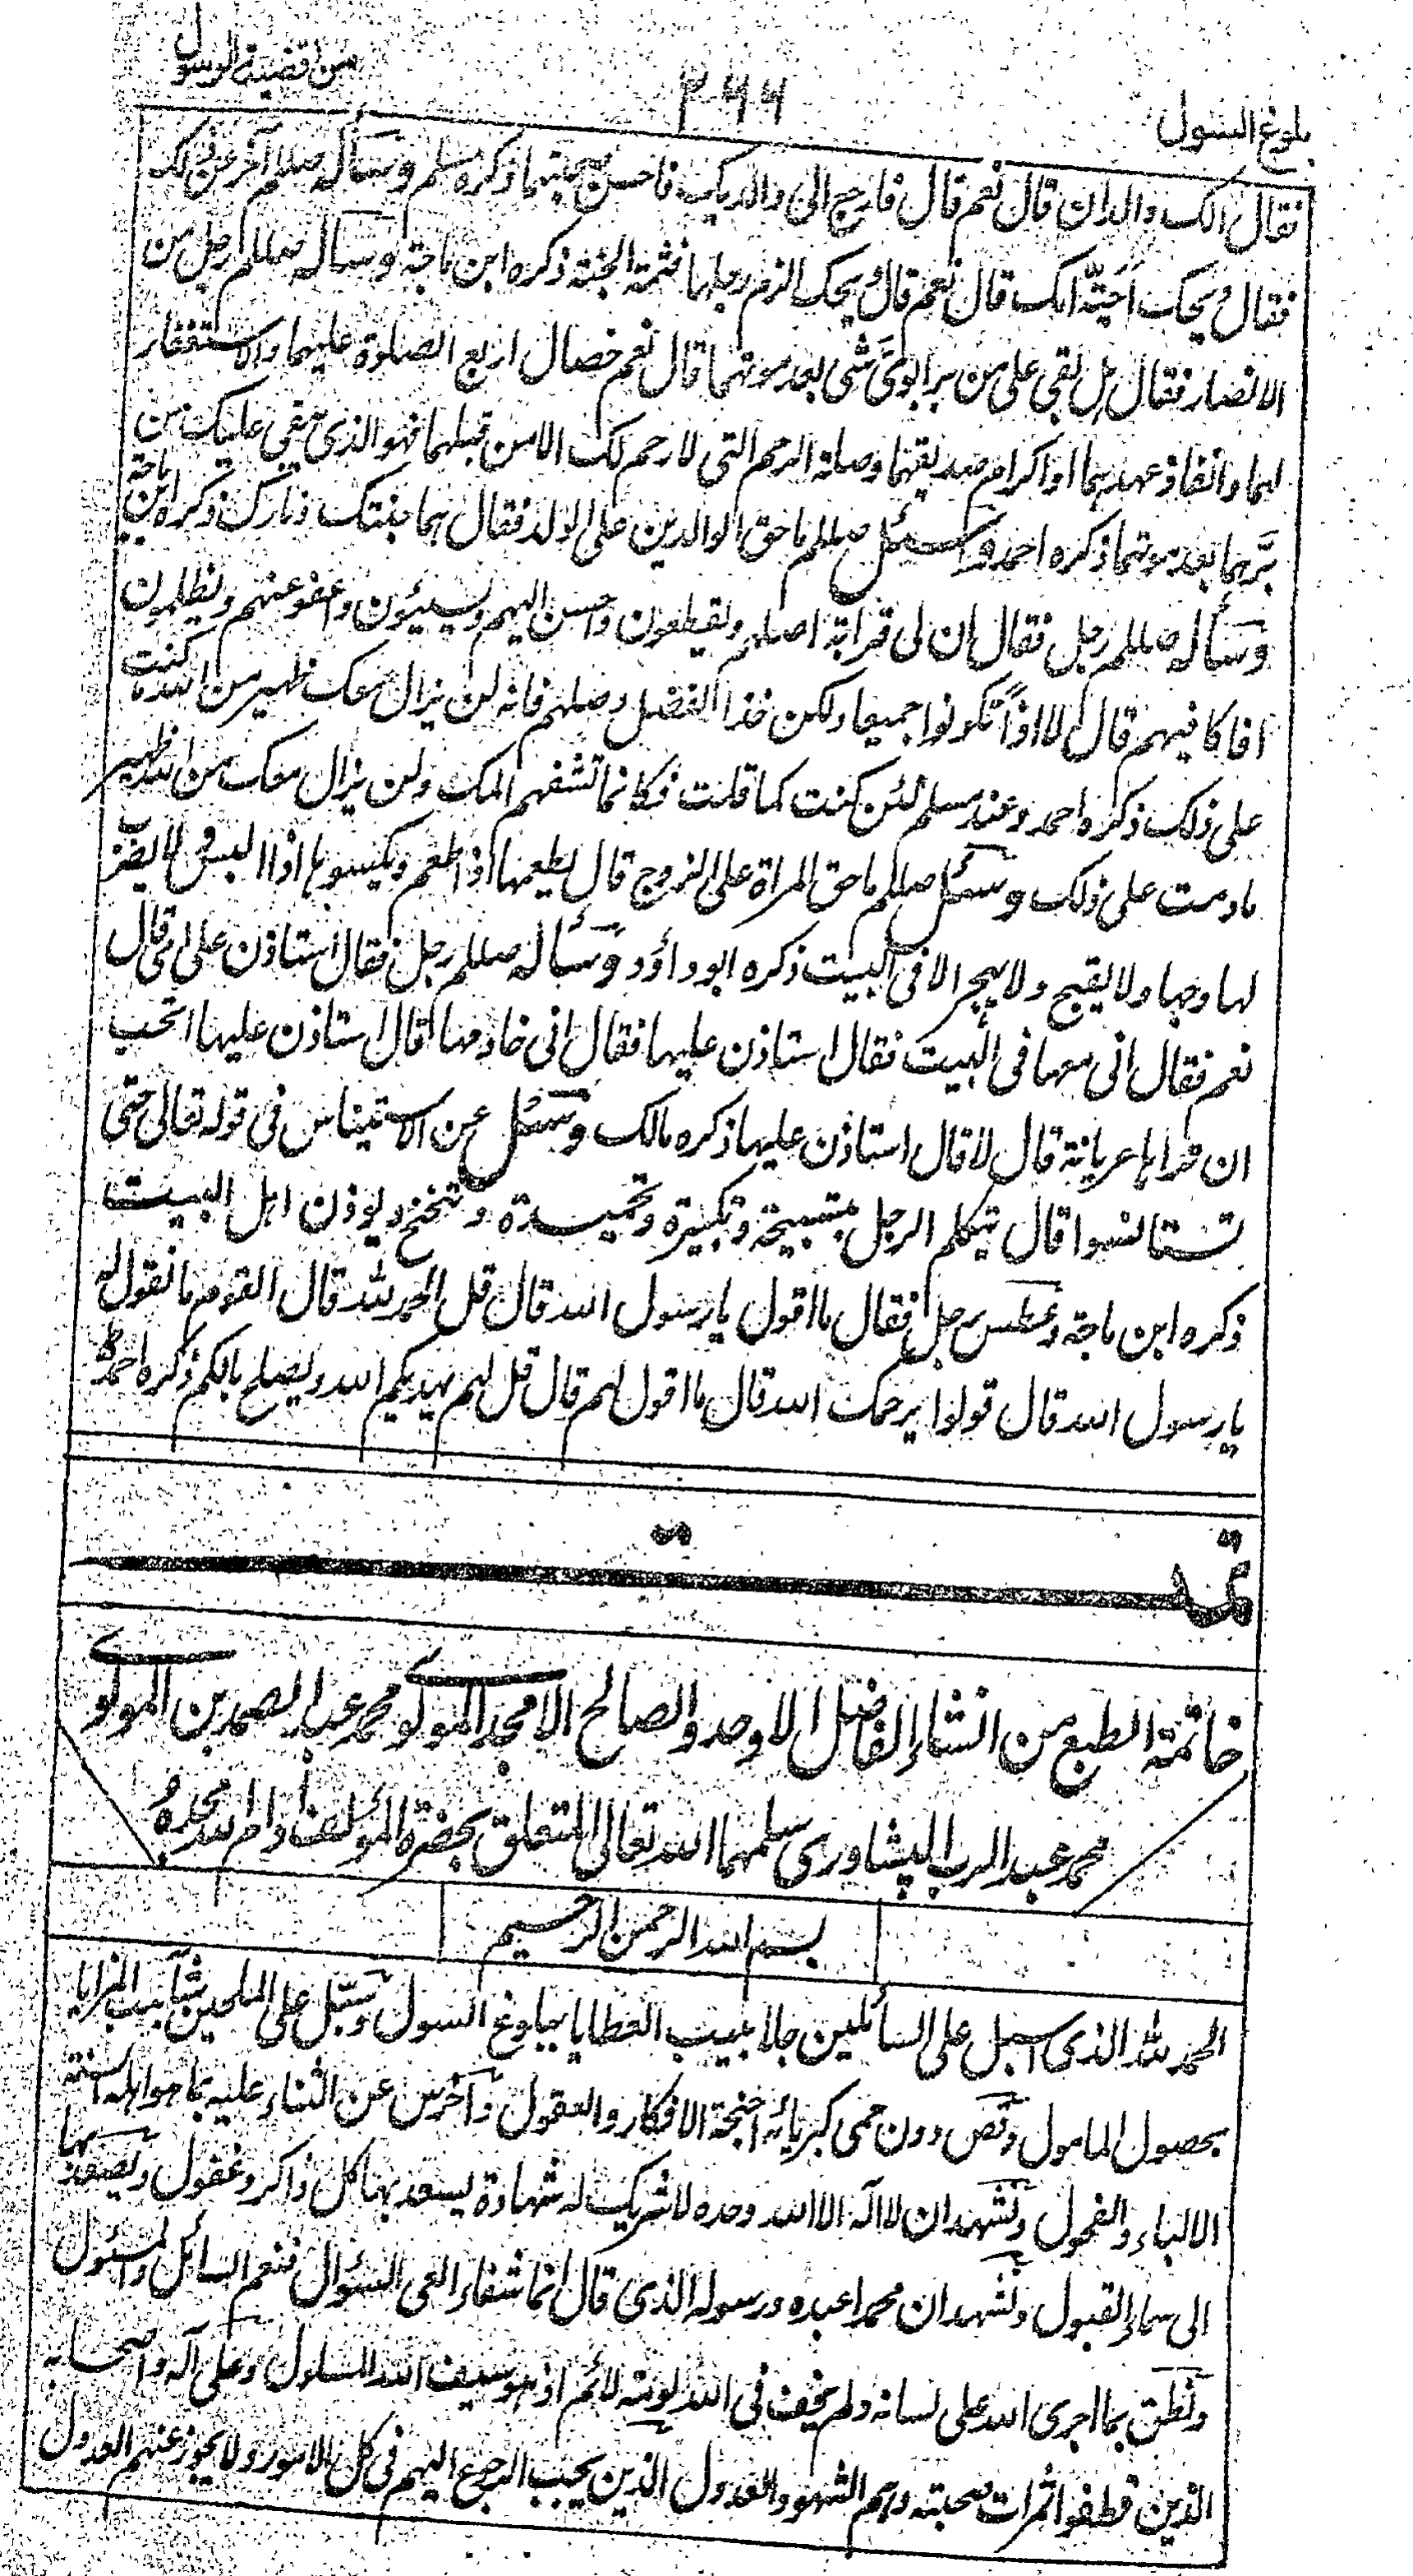 بلوغ السول
٢٦٦
من اقضیة الرسول
فقال الک والدان قال نعم قال فارجع الی والدیک فاحسن صحبتهما ذکره مسلم وسأله صللم آخر عن ذلک
فقال ویحک احیّة امک قال نعم قال ویحک الزم رجلها فثمة الجنة ذکره ابن ماجة وسأله صللم رجل من
الانصار فقال هل بقی علی من بر ابویّ شئ بعد موتهما قال نعم خصال اربع الصلوة علیهما والاستغفار
لهما وانفاذ عهدهما واکرام صدیقهما وصلة الرحم التی لا رحم لک الا من قبلهما فهو الذی بقی علیک من
برّهما بعد موتهما ذکره احمد وسئل صللم ما حق الوالدین علی الولد فقال هما جنتک ونارک ذکره ابن ماجة
وسأله صللم رجل فقال ان لی قرابة اصلهم ویقطعون واحسن الیهم ویسیئون واعفو عنهم ویظلمون
افاکافیهم قال لا اذاً تکونوا جمیعا ولکن خذ الفضل وصلهم فانه لن یزال معک ظهیر من الله ما کنت
علی ذلک ذکره احمد وعند مسلم لئن کنت کما قلت فکانما تسفهم المل ولن یزال معک من الله ظهیر
ما دمت علی ذلک وسئل صللم ما حق المراة علی الزوج قال یطعمها اذا طعم ویکسوها اذا لبس ولا یضرب
لها وجها ولا یقبح ولا یهجر الا فی البیت ذکره ابو داؤد وسأله صللم رجل فقال استاذن علی امی قال
نعم فقال انی معها فی البیت فقال استاذن علیها فقال انی خادمها قال استاذن علیها اتحب
ان تراها عریانة قال لا قال استاذن علیها ذکره مالک وسئل عن الاستیناس فی قوله تعالی حتی
تستانسوا قال یتکلم الرجل بتسبیحة وتکبیرة وتحمیدة ویتنحنح ویوذن اهل البیت
ذکره ابن ماجة وعطس رجل فقال ما اقول یا رسول الله قال قل الحمد لله قال القوم ما نقول له
یا رسول الله قال قولوا یرحمک الله قال ما اقول لهم قال قل لهم یهدیکم الله ویصلح بالکم ذکره احمد
تمت
خاتمة الطبع من انشاء الفاضل الاوحد والصالح الامجد المولوی محمد عبد الصمد بن المولوی
محمد عبد الرب البشاوری سلمهما الله تعالی المتعلق بحضرة المؤلف ادام الله مجده
بسم الله الرحمن الرحیم
الحمد لله الذی اسبل علی السائلین جلابیب العطایا ببلوغ السول وسبّل علی الملحین شآبیب المزایا
بحصول المامول وقص دون حمی کبریائه اجنحة الافکار والعقول واخرس عن الثناء علیه بما هو اهله السنة
الالباء والفحول ونشهد ان لا اله الا الله وحده لا شریک له شهادة یسعد بها کل ذاکر وغفول ویصعد بها
الی سماء القبول ونشهد ان محمدا عبده ورسوله الذی قال انما شفاء العی السؤال فنعم السائل والمسئول
ونطق بما اجری الله علی لسانه ولم یخف فی الله لومة لائم اذ هو سیف الله المسلول وعلی آله واصحابه
الذین قطفوا ثمرات صحبته وهم الشهود العدول الذین یجب الرجوع الیهم فی کل الامور ولا یجوز عنهم العدول